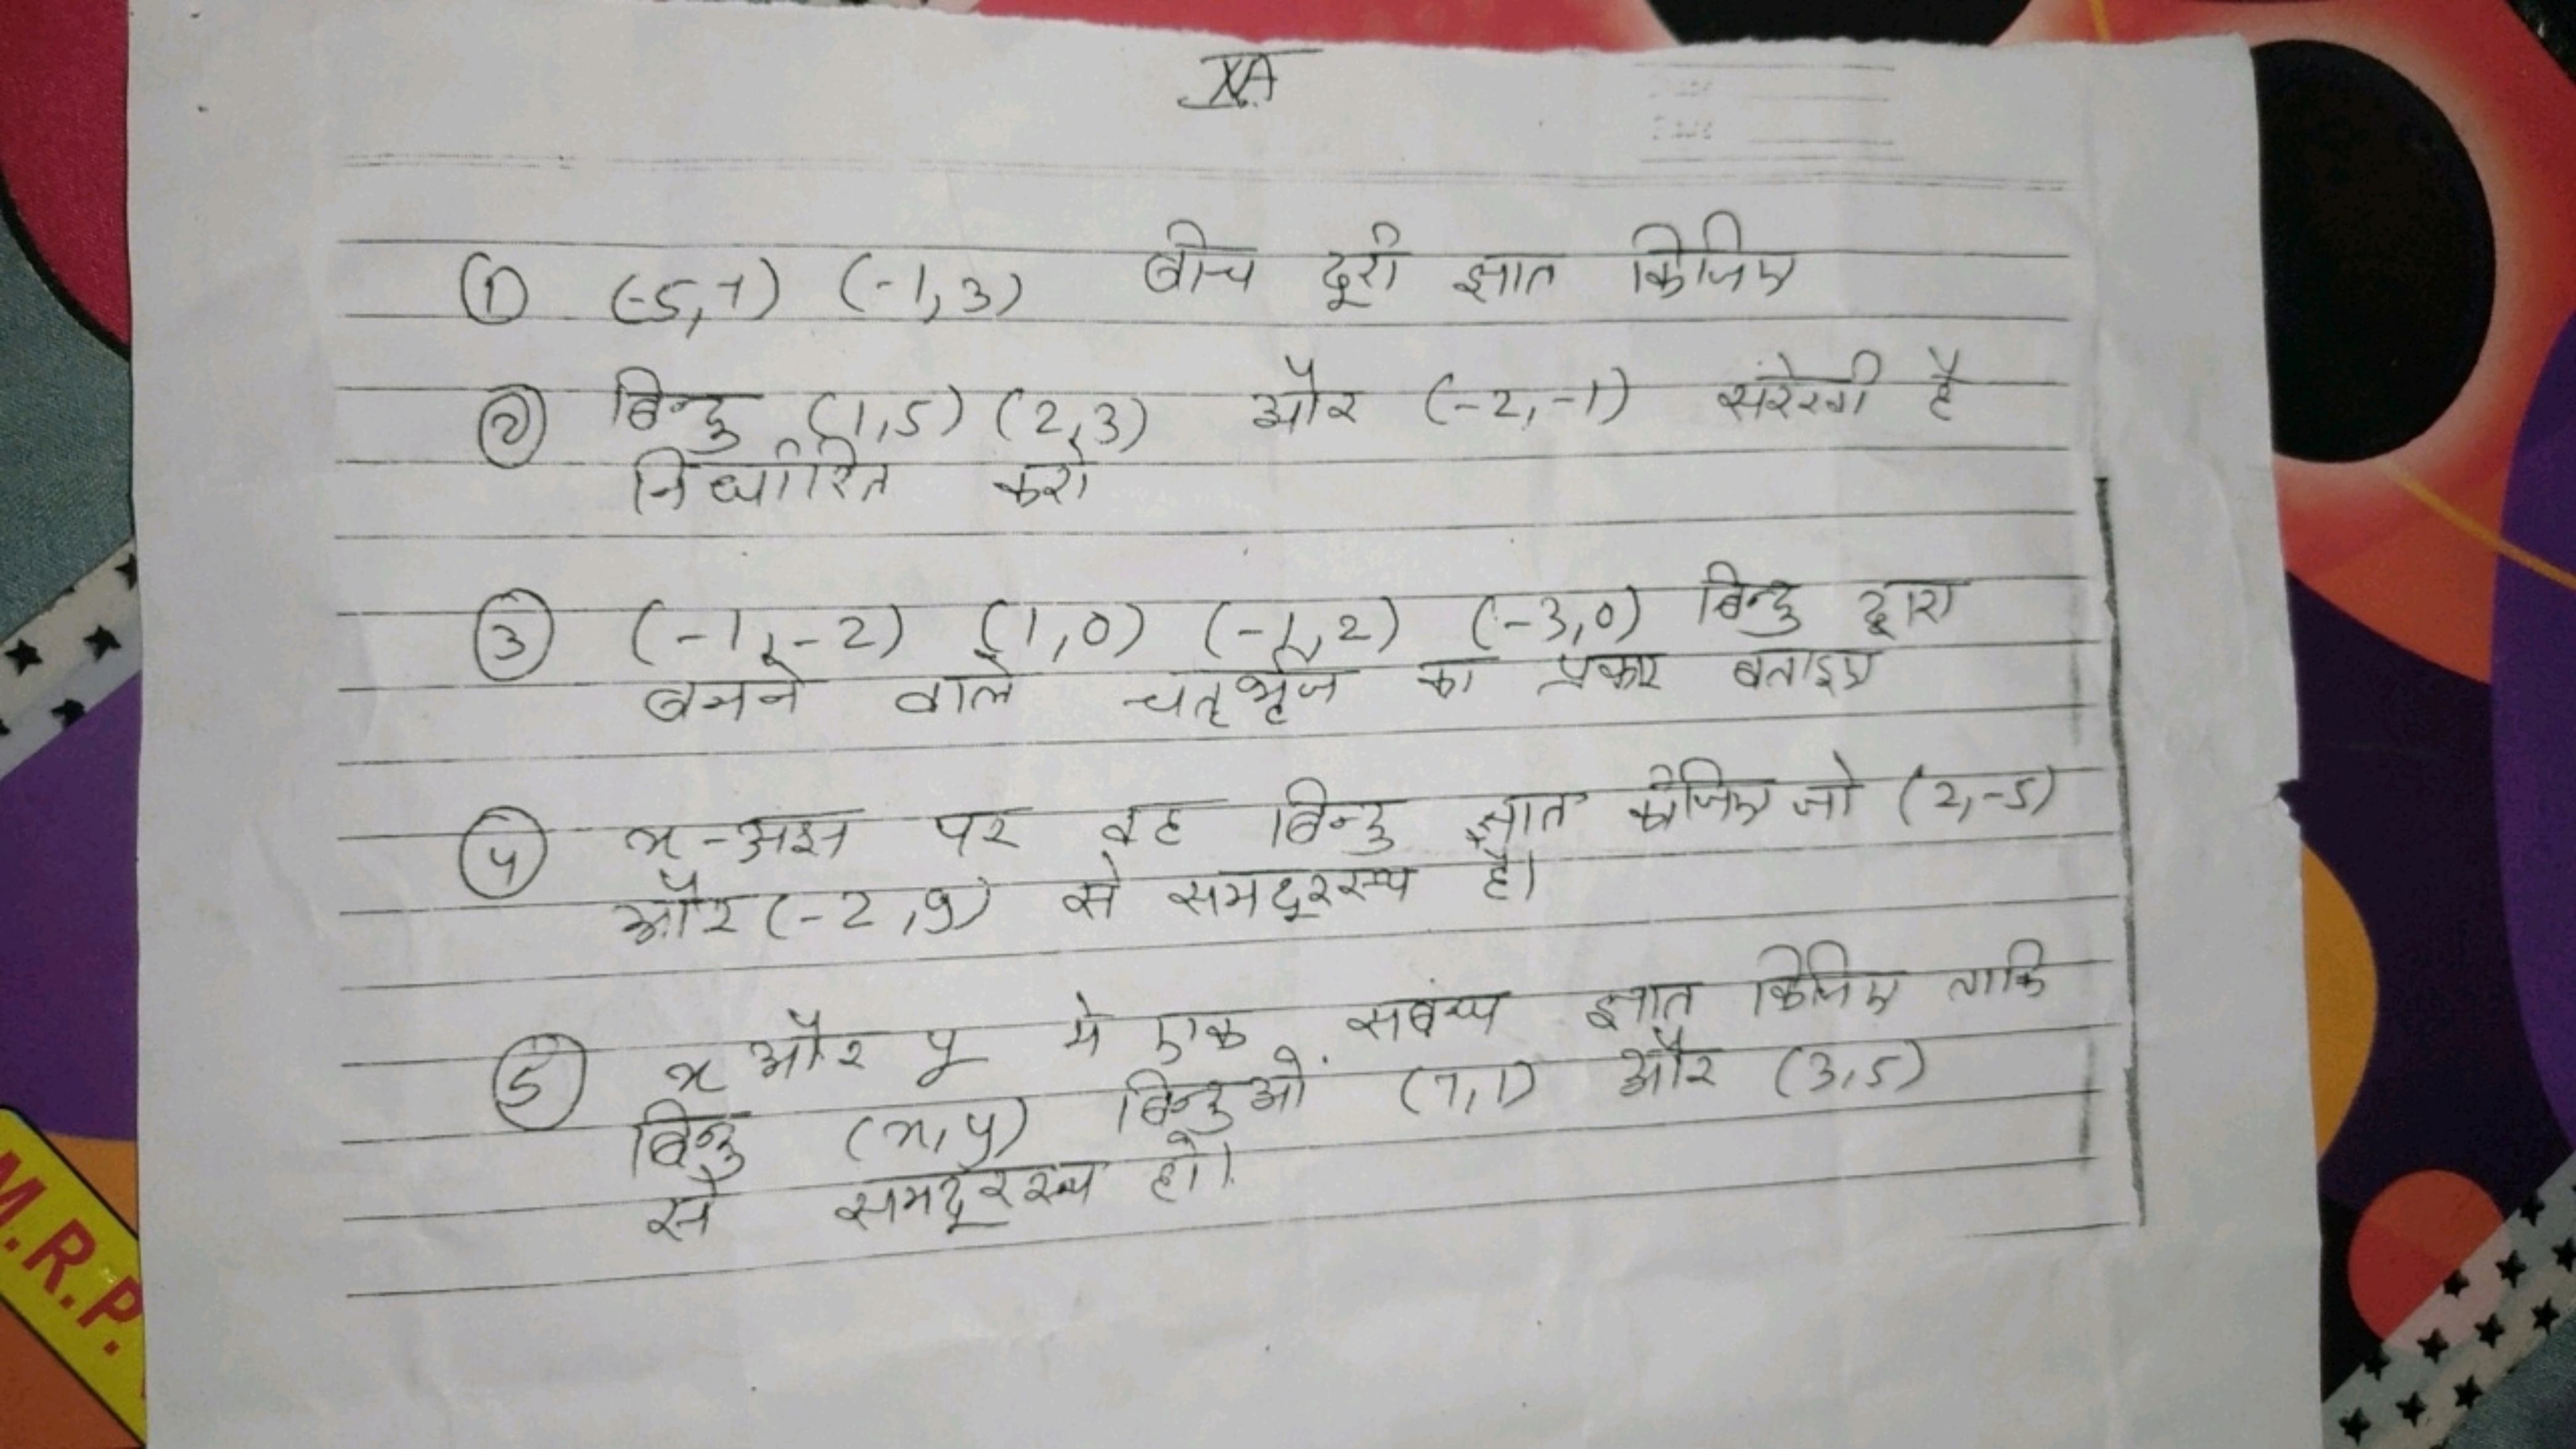 XA
① (-5,7) (-1,3) बीच दूरी ज्ञात किजिए
② बिन्दु (1,5) (2,3) और (-2,-1) संरेखी है
निर्धारित करो
③ (-1,-2) (1,0) (-1,2) (-3,0) बिन्दु द्वारा
बनने वाले चतृर्भुज का प्रकार बताइए
④ x-अक्ष पर वह बिन्दु ज्ञात कीजिए जो (2,-5)
और (-2,9) से समदूरस्थ है।
⑤ x और y मे एक सबंध ज्ञात किजिए ताकि
बिन्दु (x,y) बिन्दुओ (7,1) और (3,5)
से समदूरस्थ हो।
M.R.P.